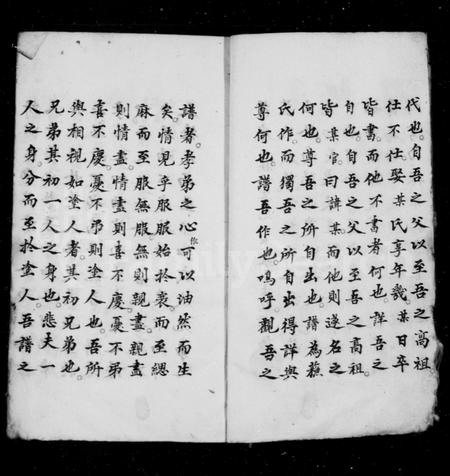 代也自吾之父以至吾之高祖
仕不仕娶某氏享年幾某日卒
皆書而他不書者何也詳吾之
自也自吾之父以至吾之高祖
皆某官曰諱某而他則遂名之
何也尊吾之所自出也譜為蘇
氏作而獨吾之所自出得詳與
尊何也譜吾作也嗚呼觀吾之
譜者孝弟之心你可以油然而生
矣情見乎服服始於衰而至緦
麻而至服無服無則親盡親盡
則情盡情盡則喜不慶憂不弔
喜不慶憂不弔則塗人也吾所
與相視如塗人者其初兄弟也
兄弟其初一人之身也悲夫一
人之身分而至於塗人吾譜之